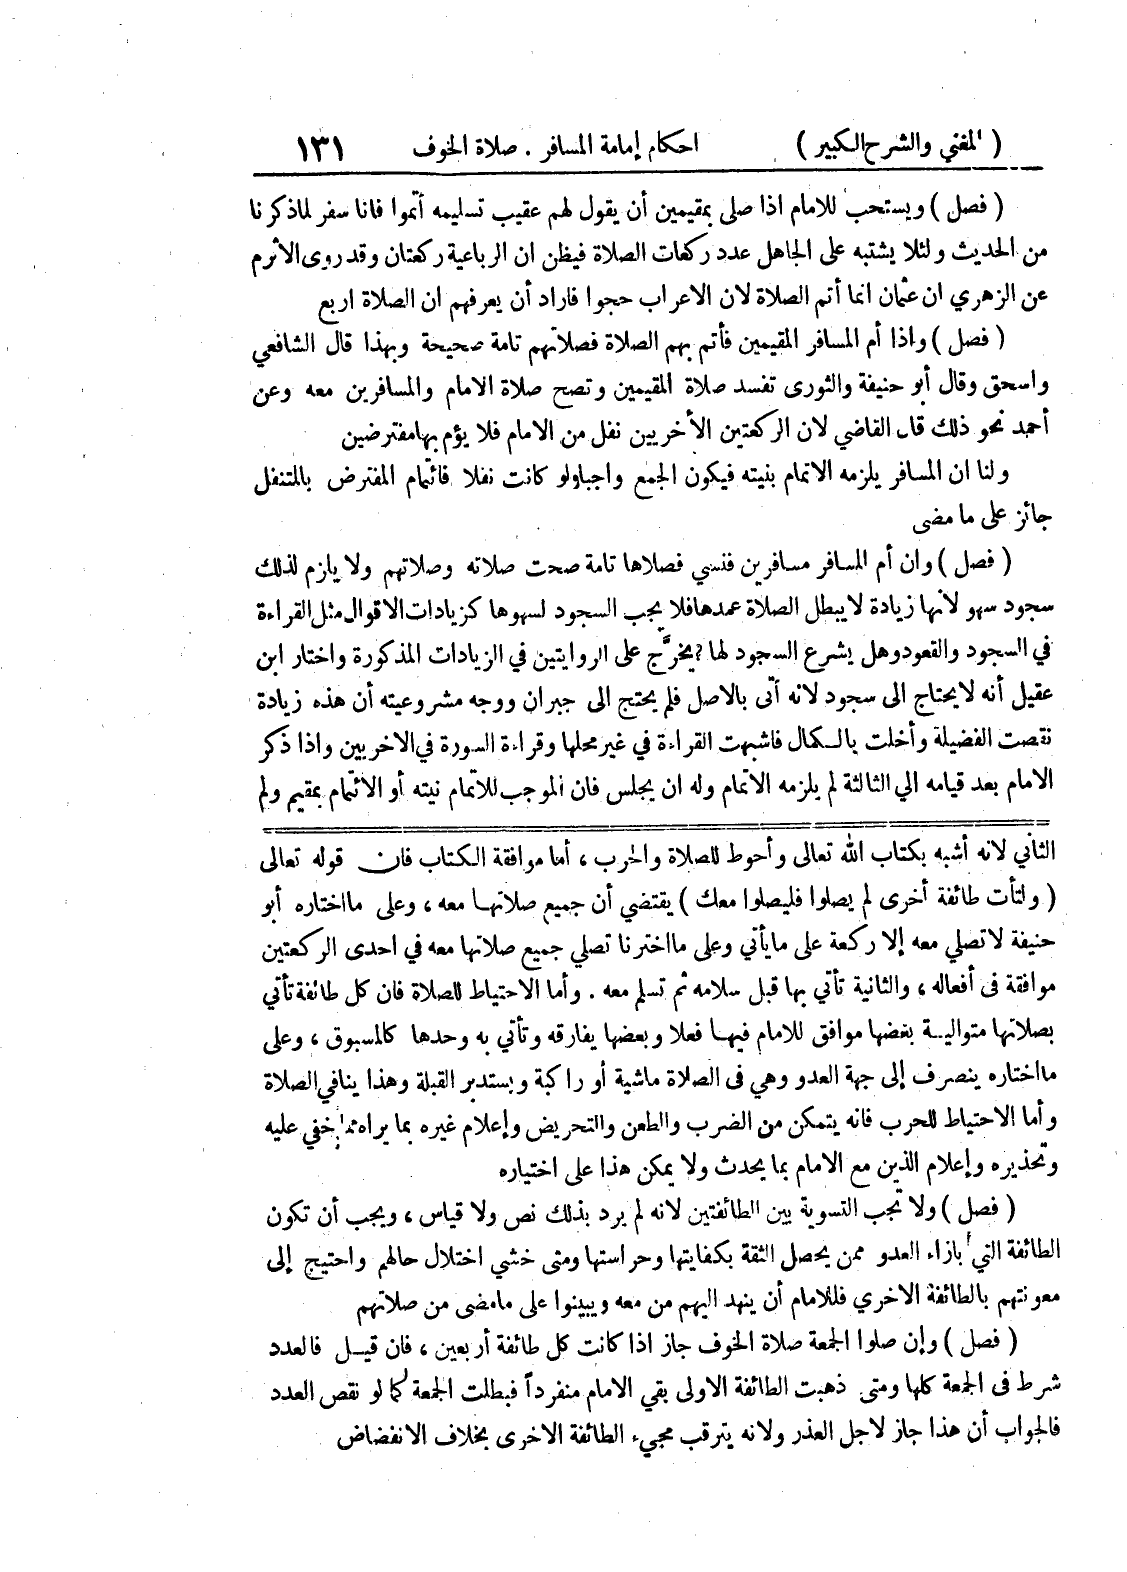 ( المغني والشرح الكبير ) احكام إمامة المسافر . صلاة الخوف ١٣١
( فصل ) ويستحب للامام اذا صلى بمقيمين أن يقول لهم عقيب تسليمه أتموا فانا سفر لما ذكرنا
من الحديث ولئلا يشتبه على الجاهل عدد ركعات الصلاة فيظن ان الرباعية ركعتان وقد روى الأثرم
عن الزهري ان عثمان انما أتم الصلاة لان الاعراب حجوا فاراد أن يعرفهم ان الصلاة اربع
( فصل ) واذا أم المسافر المقيمين فأتم بهم الصلاة فصلاتهم تامة صحيحة وبهذا قال الشافعي
واسحق وقال أبو حنيفة والثورى تفسد صلاة المقيمين وتصح صلاة الامام والمسافرين معه وعن
أحمد نحو ذلك قال القاضي لان الركعتين الأخريين نفل من الامام فلا يؤم بها مفترضين
ولنا ان المسافر يلزمه الاتمام بنيته فيكون الجمع واجبا ولو كانت نفلا فائتمام المفترض بالمتنفل
جائز على ما مضى
( فصل ) وان أم المسافر مسافرين فنسي فصلاها تامة صحت صلاته وصلاتهم ولا يلزم لذلك
سجود سهو لأنها زيادة لا يبطل الصلاة عمدها فلا يجب السجود لسهوها كزيادات الاقوال مثل القراءة
في السجود والقعود وهل يشرع السجود لها ؟ يخرَّج على الروايتين في الزيادات المذكورة واختار ابن
عقيل أنه لا يحتاج الى سجود لانه أتى بالاصل فلم يحتج الى جبران ووجه مشروعيته أن هذه زيادة
نقصت الفضيلة وأخلت بالكمال فاشبهت القراءة في غير محلها وقراءة السورة في الاخريين واذا ذكر
الامام بعد قيامه الي الثالثة لم يلزمه الاتمام وله ان يجلس فان الموجب للاتمام نيته أو الائتمام بمقيم ولم
الثاني لانه أشبه بكتاب الله تعالى وأحوط للصلاة والحرب ، أما موافقة الكتاب فان قوله تعالى
( ولتأت طائفة أخرى لم يصلوا فليصلوا معك ) يقتضي أن جميع صلاتها معه ، وعلى ما اختاره أبو
حنيفة لا تصلي معه إلا ركعة على ما يأتي وعلى ما اخترنا تصلي جميع صلاتها معه في احدى الركعتين
موافقة فى أفعاله ، والثانية تأتي بها قبل سلامه ثم تسلم معه . وأما الاحتياط للصلاة فان كل طائفة تأتي
بصلاتها متوالية بعضها موافق للامام فيها فعلا وبعضها يفارقه وتأتي به وحدها كالمسبوق ، وعلى
ما اختاره ينصرف إلى جهة العدو وهي فى الصلاة ماشية أو راكبة ويستدبر القبلة وهذا ينافي الصلاة
وأما الاحتياط للحرب فانه يتمكن من الضرب والطعن والتحريض وإعلام غيره بما يراه مما خفي عليه
وتحذيره وإعلام الذين مع الامام بما يحدث ولا يمكن هذا على اختياره
( فصل ) ولا تجب التسوية بين الطائفتين لانه لم يرد بذلك نص ولا قياس ، ويجب أن تكون
الطائفة التي بازاء العدو ممن يحصل الثقة بكفايتها وحراستها ومتى خشي اختلال حالهم واحتيج إلى
معونتهم بالطائفة الاخري فللامام أن ينهد اليهم من معه ويبينوا على ما مضى من صلاتهم
( فصل ) وإن صلوا الجمعة صلاة الخوف جاز اذا كانت كل طائفة أربعين ، فان قيل فالعدد
شرط فى الجمعة كلها ومتى ذهبت الطائفة الاولى بقي الامام منفرداً فبطلت الجمعة كما لو نقص العدد
فالجواب أن هذا جاز لاجل العذر ولانه يترقب مجيء الطائفة الاخرى بخلاف الانفضاض